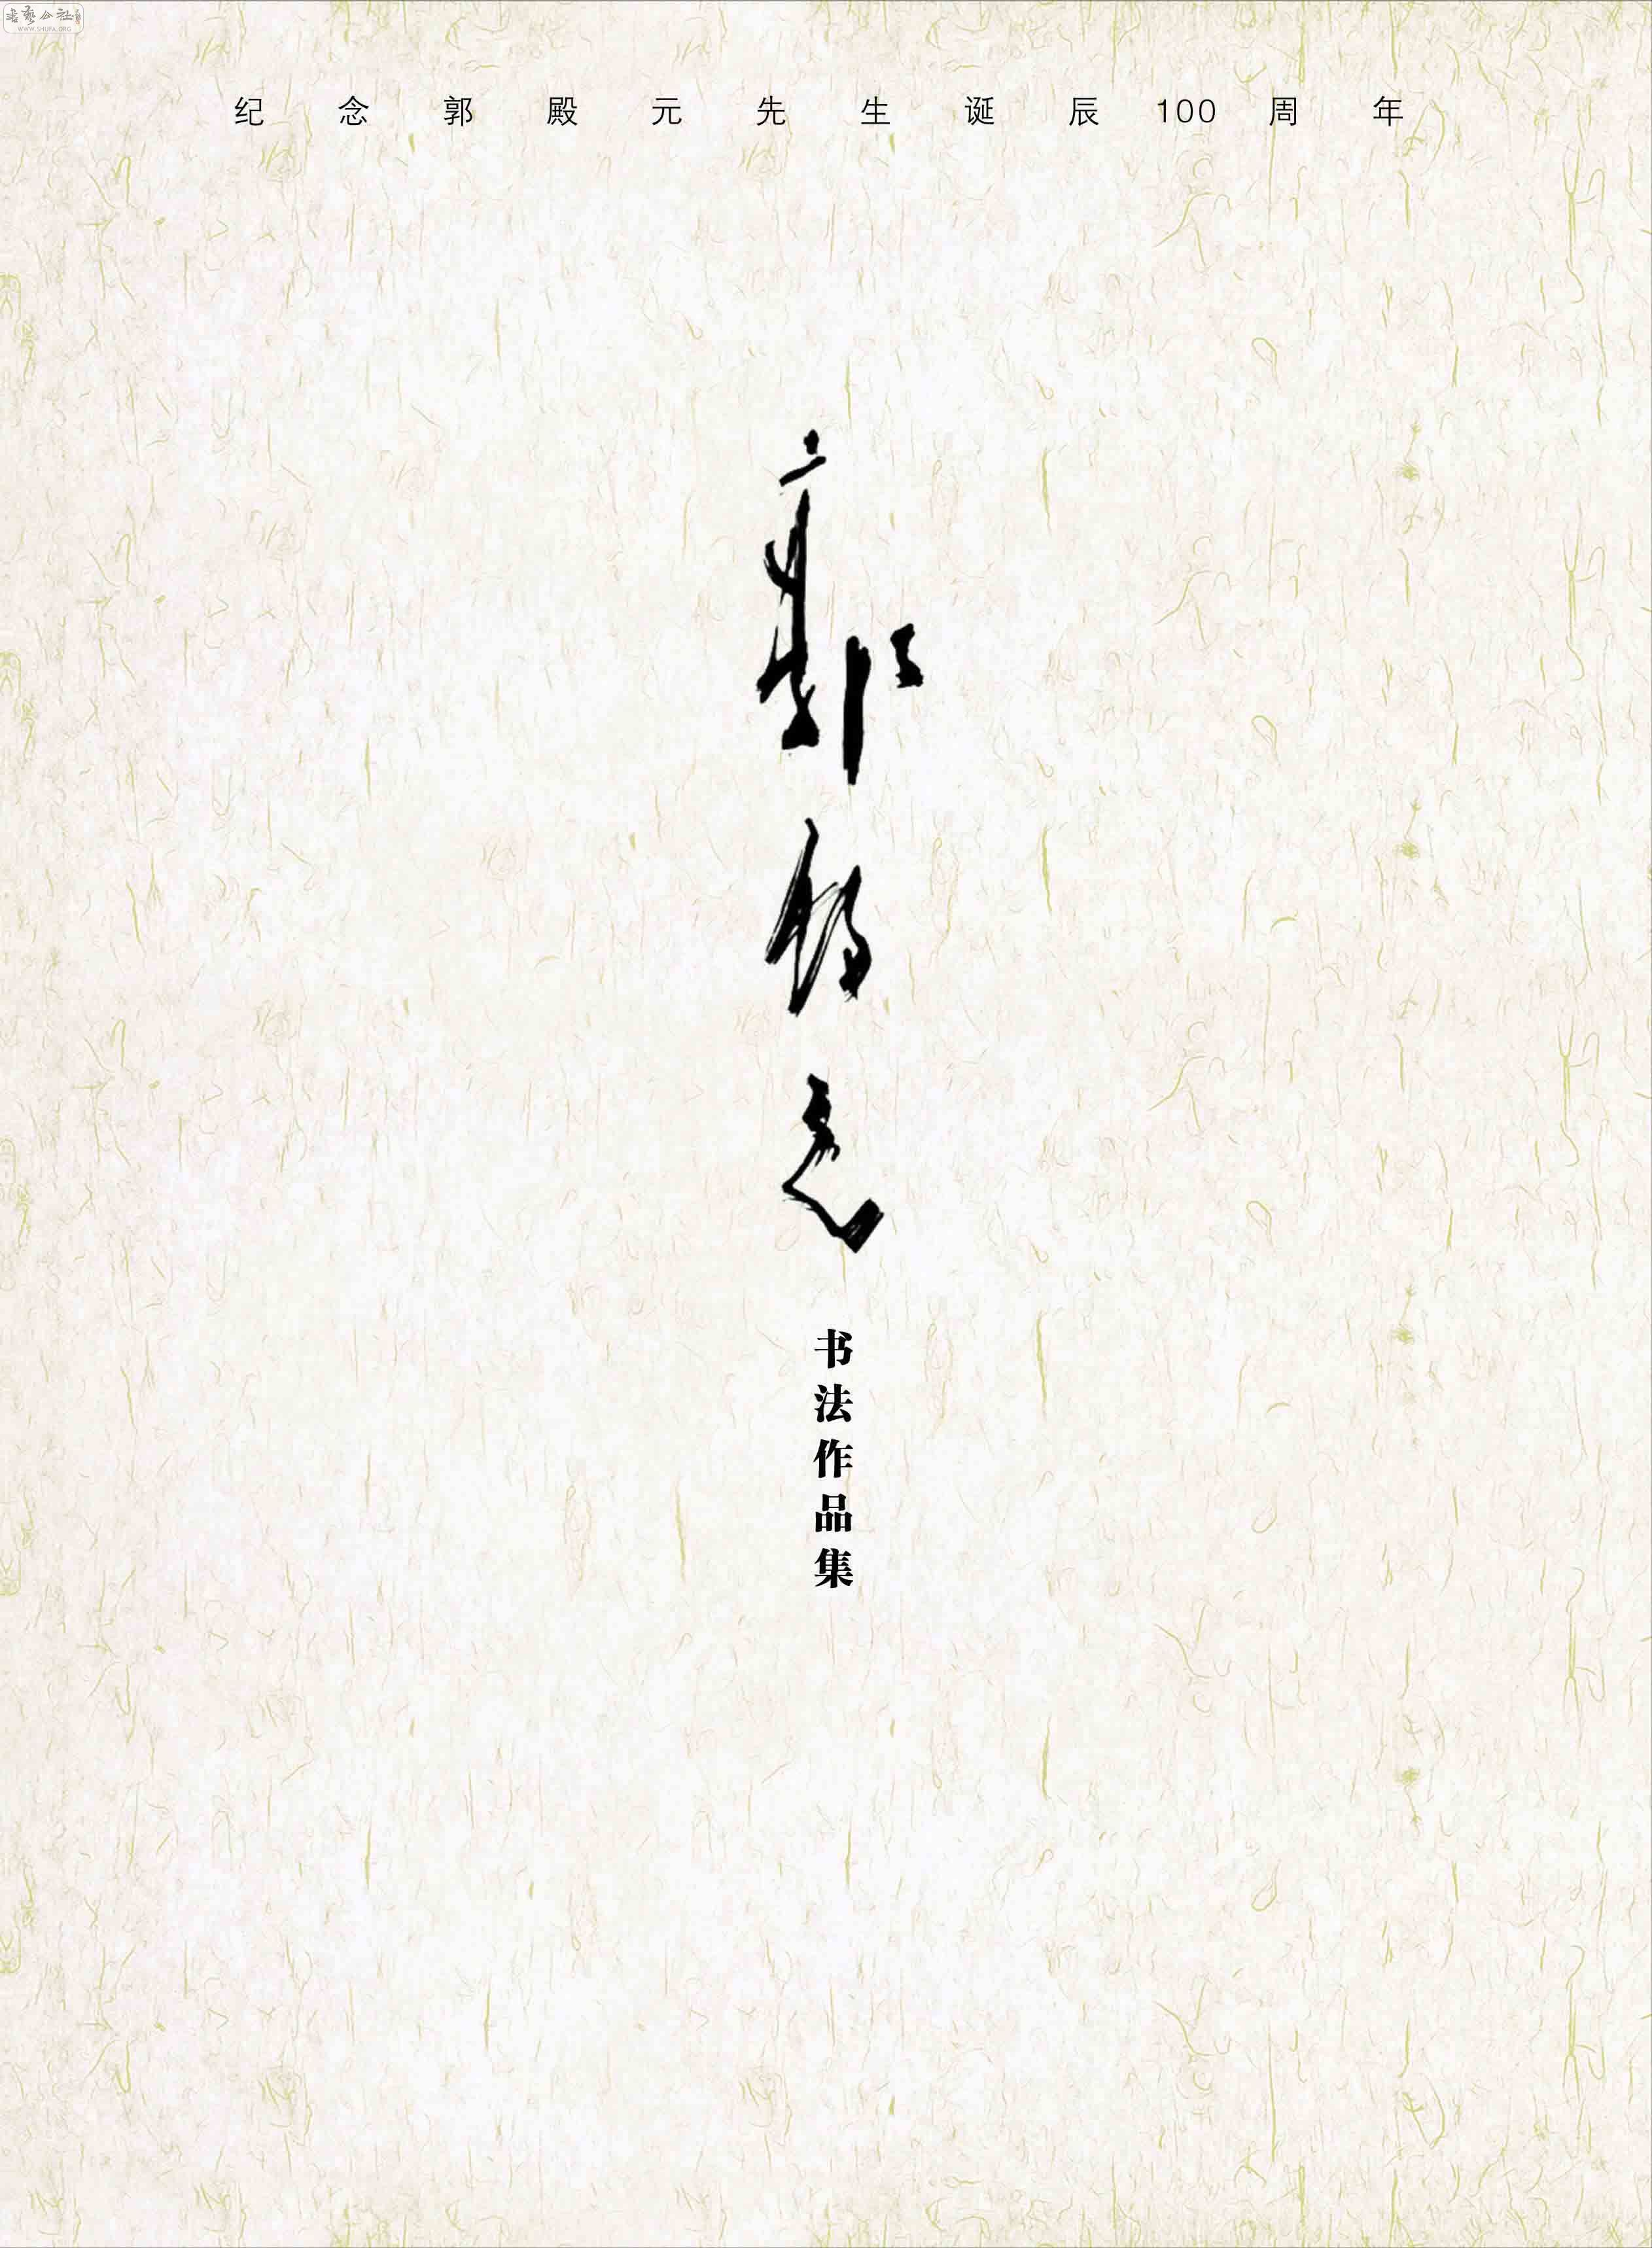 书艺公社
WWW.SHUFA.ORG
纪念郭殿元先生诞辰100周年
郭殿元
书法作品集